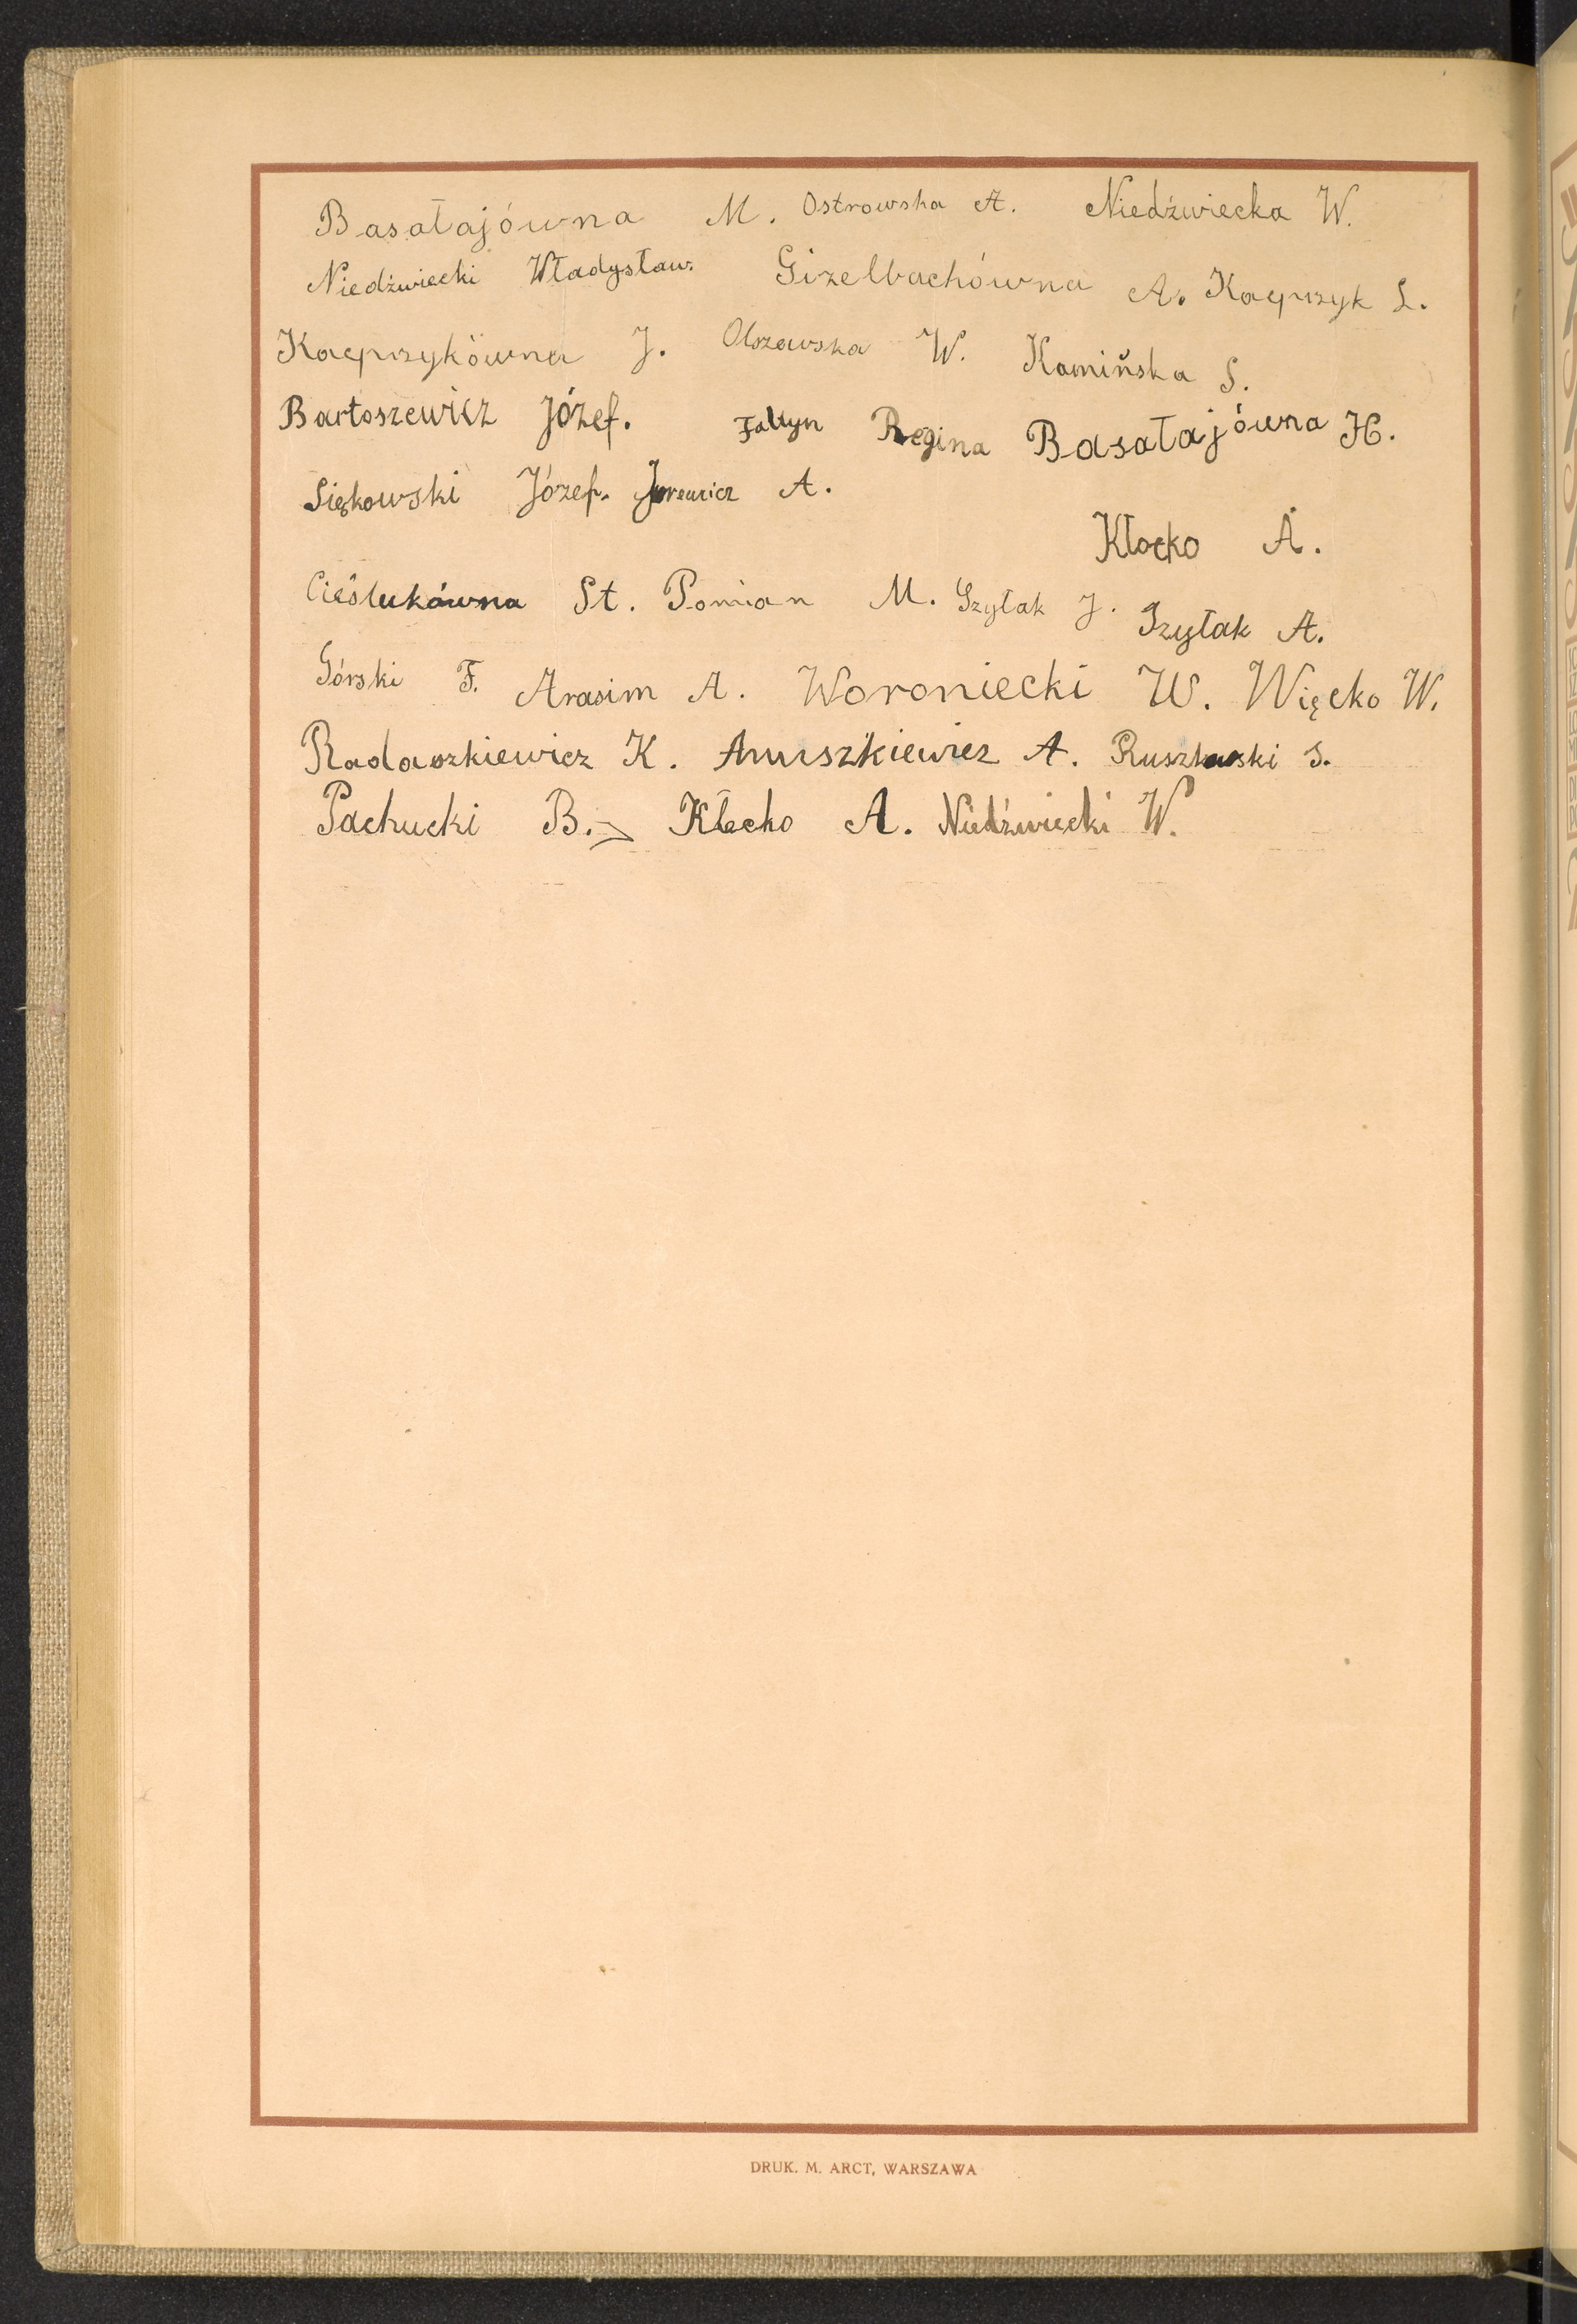 Basałajówna M. Ostrowska A. Niedźwiecka W.
Niedźwiecki Władysław. Gizelbachówna A. Kacprzyk L.
Kacprzykówna J. Olszewska W. Kamińska S.
Bartoszewicz Józef. Fałtyn Regina Basałajówna H.
Siękowski Józef. Jurewicz A.
Kłocko A.
Cieślukówna St. Pomian M. Szyłak J. Szyłak A.
Górski F. Arasim A. Woroniecki W. Więcko W.
Radaszkiewicz K. Anuszkiewicz A. Ruszkowski S.
Pachucki B. Kłocko A. Niedźwiecki W.
DRUK. M. ARCT, WARSZAWA